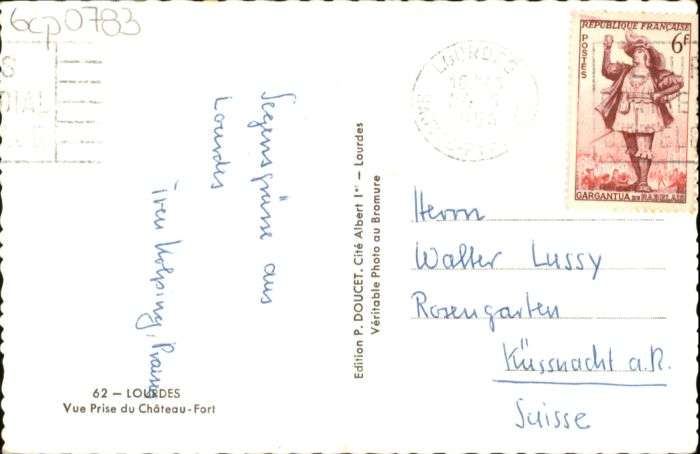 6cp0783
RÉPUBLIQUE FRANÇAISE
6F
POSTES
GARGANTUA DE RABELAIS
LOURDES
Segensgrüsse aus
Lourdes
Treu Kolping,
Edition P. DOUCET. Cité Albert 1er — Lourdes
Véritable Photo au Bromure
Herrn
Walter Lussy
Rosengarten
Küssnacht a.R.
Suisse
62 — LOURDES
Vue Prise du Château-Fort